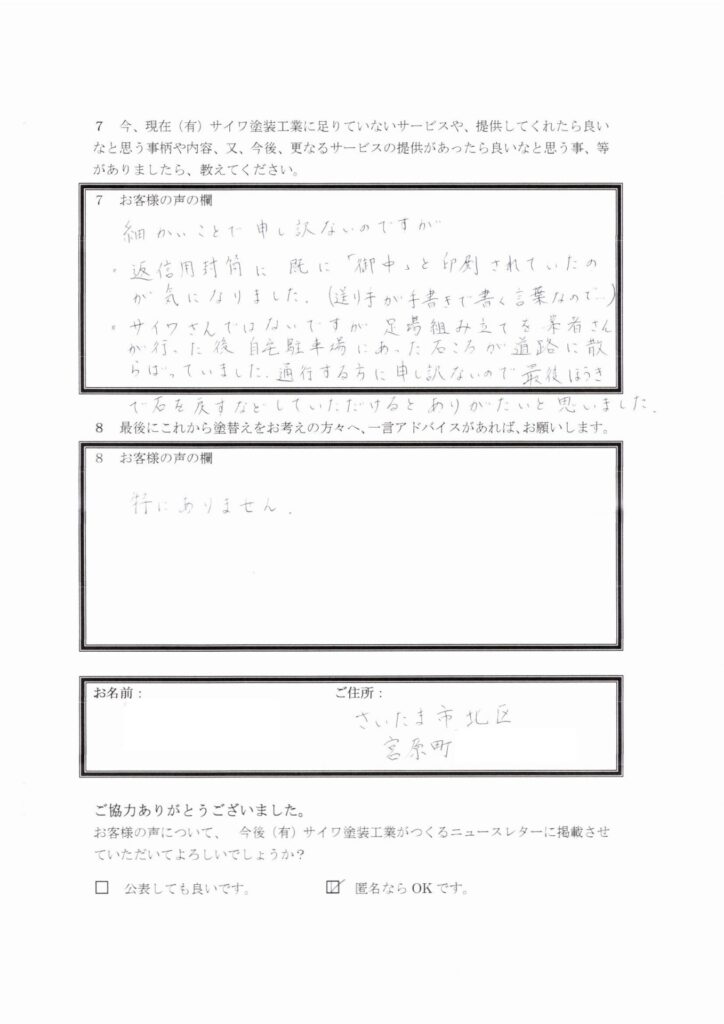 7 今、現在（有）サイワ塗装工業に足りていないサービスや、提供してくれたら良い
なと思う事柄や内容、又、今後、更なるサービスの提供があったら良いなと思う事、等
がありましたら、教えてください。
7 お客様の声の欄
細かいことで申し訳ないのですが
・返信用封筒に 既に「御中」と印刷されていたの
が気になりました。(送り手が手書きで書く言葉なので…)
・サイワさんではないですが 足場組み立てを業者さん
が行った後 自宅駐車場にあった石ころが道路に散
らばっていました。通行する方に申し訳ないので最後ほうき
で石を戻すなどしていただけるとありがたいと思いました。
8 最後にこれから塗替えをお考えの方々へ、一言アドバイスがあれば、お願いします。
8 お客様の声の欄
特にありません。
お名前： ご住所：
さいたま市北区
宮原町
ご協力ありがとうございました。
お客様の声について、 今後（有）サイワ塗装工業がつくるニュースレターに掲載させ
ていただいてよろしいでしょうか？
□ 公表しても良いです。 ☑ 匿名なら OK です。